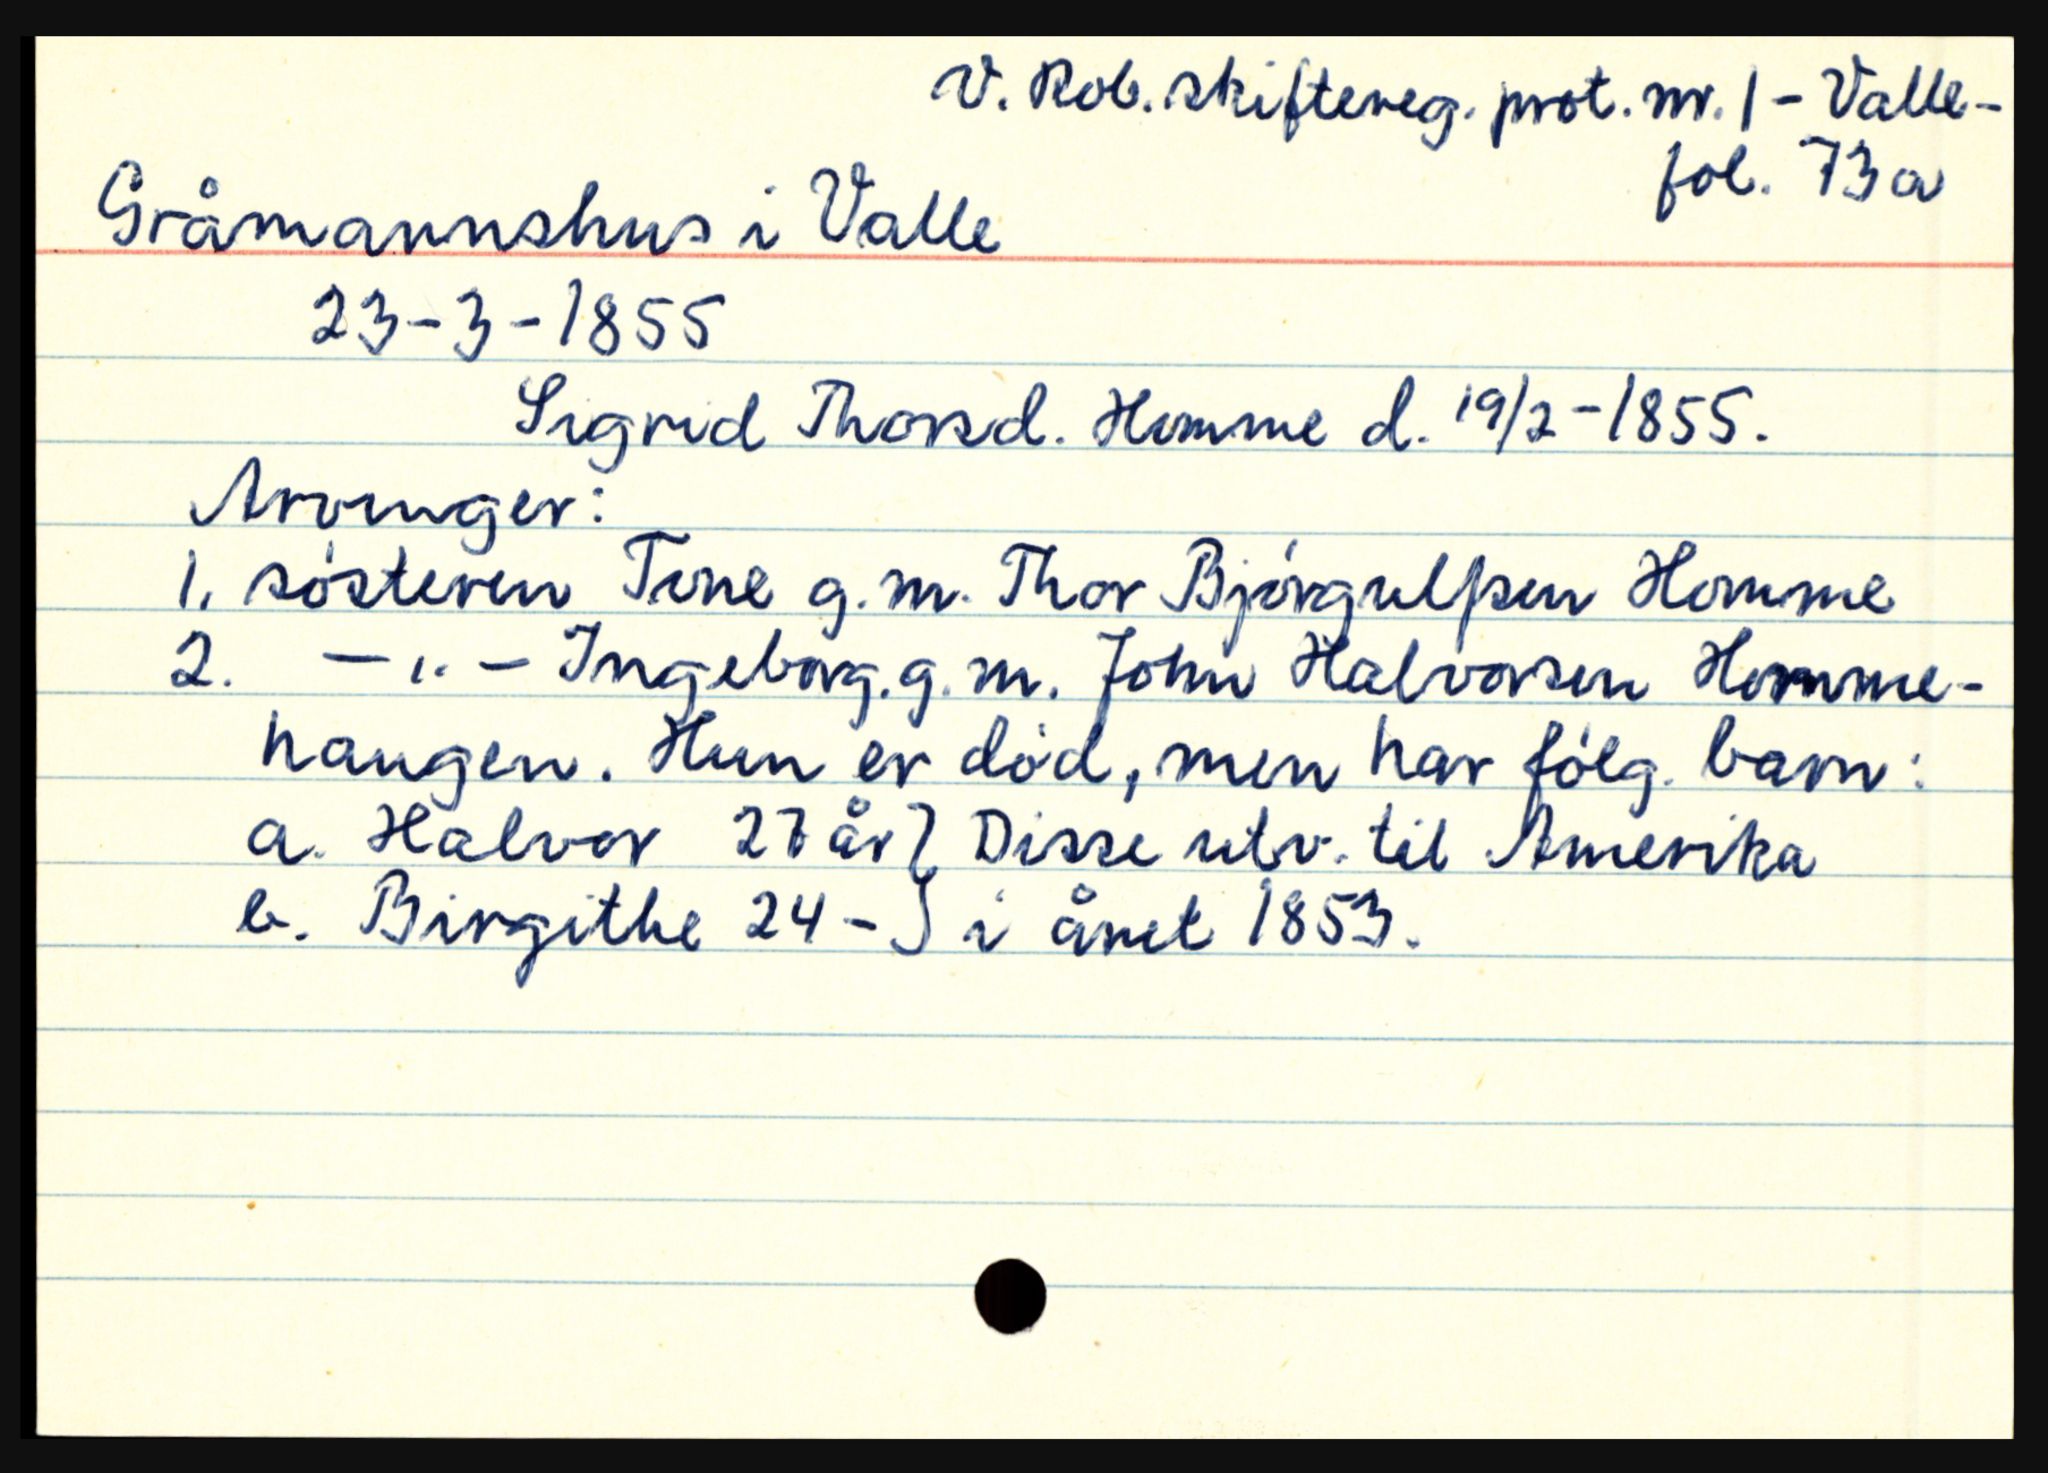 V. Rob. skiftereg. prot. nr. 1 - Valle -
fol. 73a
Gråmannshus i Valle
23-3-1855
Sigrid Thorsd. Homme d. 19/2-1855.
Arvinger:
1. søsteren Tone g.m. Thor Bjørgulfsen Homme
2. — " — Ingeborg. g.m. John Halvorsen Homme-
haugen. Hun er død, men har følg. barn:
a. Halvor 27 år } Disse utv. til Amerika
b. Birgithe 24 - } i året 1853.